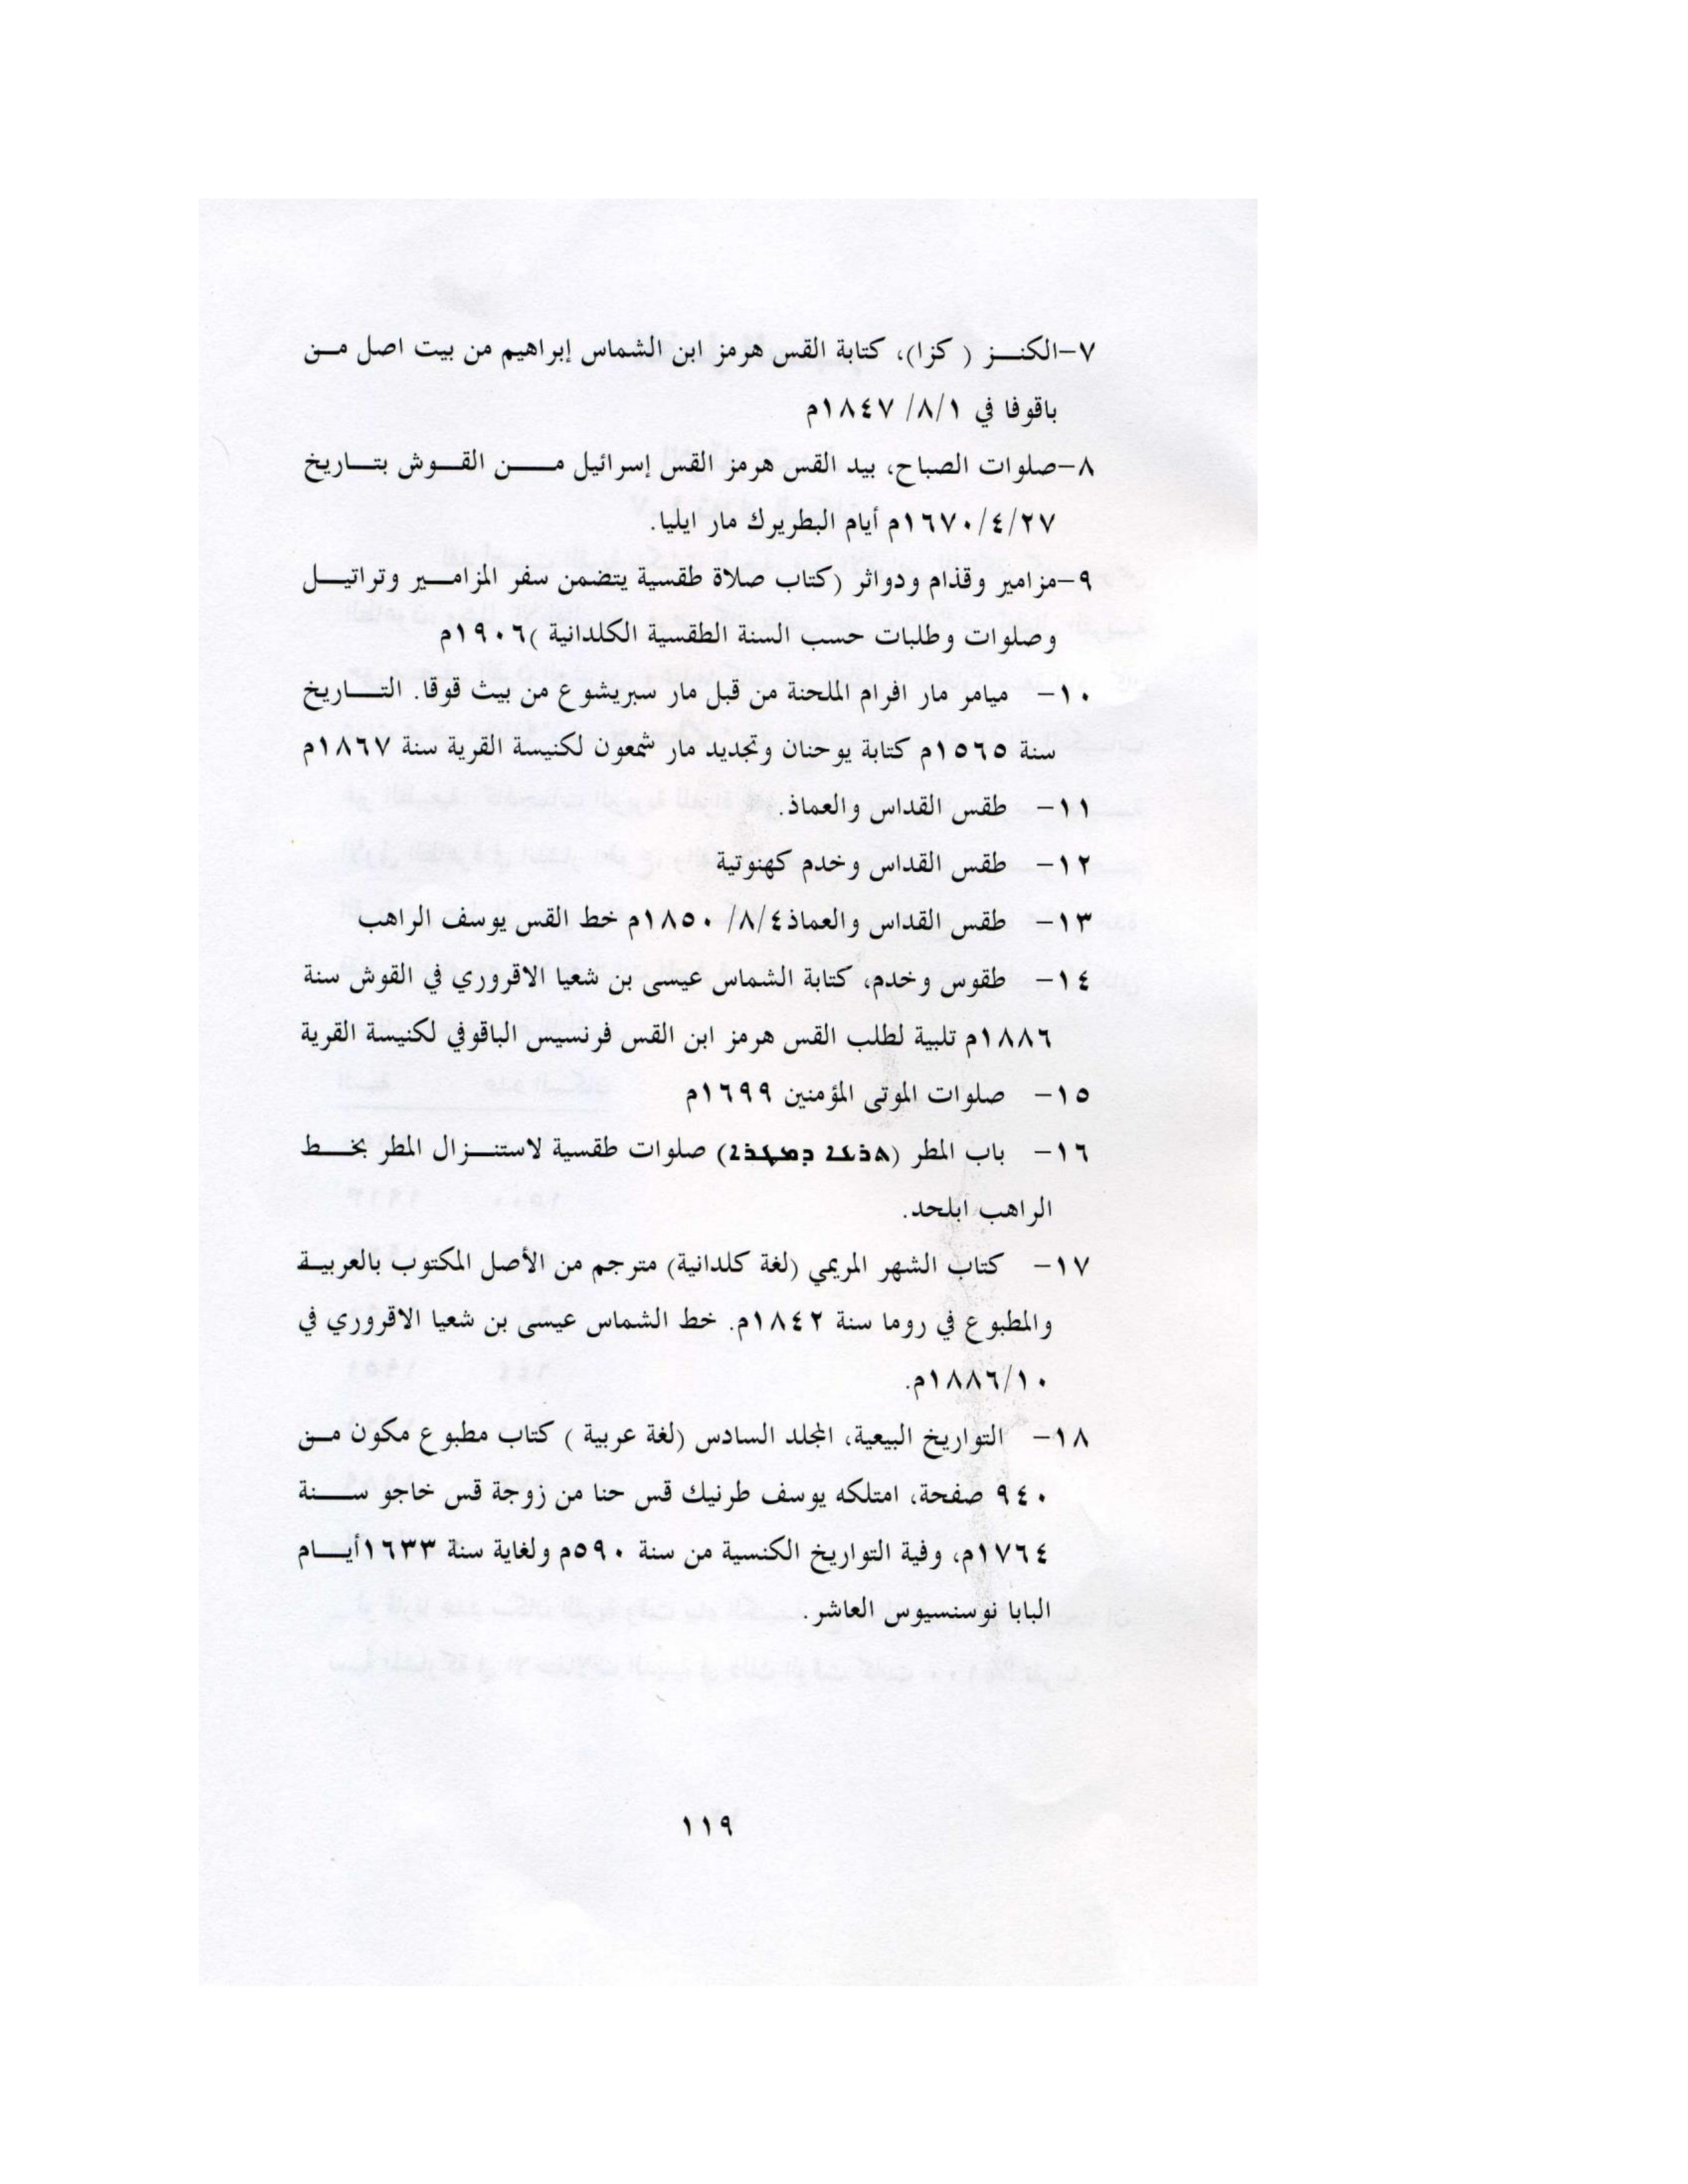 ٧-الكنـز ( كزا)، كتابة القس هرمز ابن الشماس إبراهيم من بيت اصل من
باقوفا في ٨/١/ ١٨٤٧م
٨-صلوات الصباح، بيد القس هرمز القس إسرائيل من القوش بتاريخ
١٦٧٠/٤/٢٧م أيام البطريرك مار ايليا.
٩-مزامير وقذام ودواثر (كتاب صلاة طقسية يتضمن سفر المزامير وتراتيل
وصلوات وطلبات حسب السنة الطقسية الكلدانية )١٩٠٦م
١٠- ميامر مار افرام الملحنة من قبل مار سبريشوع من بيث قوقا. التاريخ
سنة ١٥٦٥م كتابة يوحنان وتجديد مار شمعون لكنيسة القرية سنة ١٨٦٧م
١١- طقس القداس والعماذ.
١٢- طقس القداس وخدم كهنوتية
١٣- طقس القداس والعماذ٨/٤/ ١٨٥٠م خط القس يوسف الراهب
١٤- طقوس وخدم، كتابة الشماس عيسى بن شعيا الاقروري في القوش سنة
١٨٨٦م تلبية لطلب القس هرمز ابن القس فرنسيس الباقوفي لكنيسة القرية
١٥- صلوات الموتى المؤمنين ١٦٩٩م
١٦- باب المطر (ܬܪܥܐ ܕܡܛܪܐ) صلوات طقسية لاستنـزال المطر بخط
الراهب ابلحد.
١٧- كتاب الشهر المريمي (لغة كلدانية) مترجم من الأصل المكتوب بالعربية
والمطبوع في روما سنة ١٨٤٢م. خط الشماس عيسى بن شعيا الاقروري في
١٨٨٦/١٠م.
١٨- التواريخ البيعية، المجلد السادس (لغة عربية ) كتاب مطبوع مكون من
٩٤٠ صفحة، امتلكه يوسف طرنيك قس حنا من زوجة قس خاجو سنة
١٧٦٤م، وفية التواريخ الكنسية من سنة ٥٩٠م ولغاية سنة ١٦٣٣أيام
البابا نوسنسيوس العاشر.
١١٩